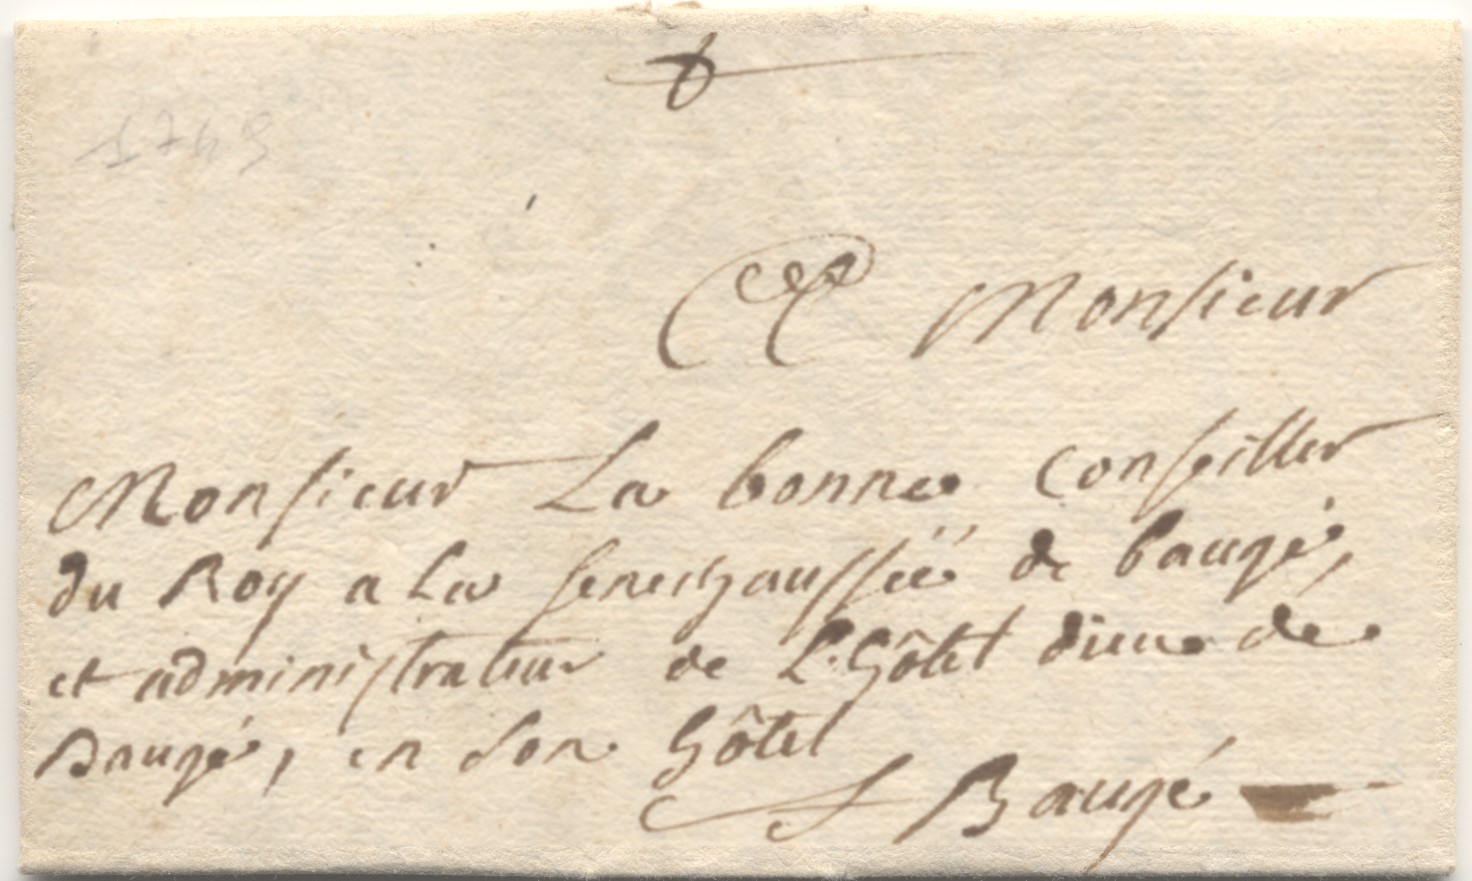 1749
A Monsieur
Monsieur La bonne Conseiller
du Roy a La seneschaussëe de baugé,
et administrateur de L'hôtel dieu de
Baugé, en son hôtel
A Baugé